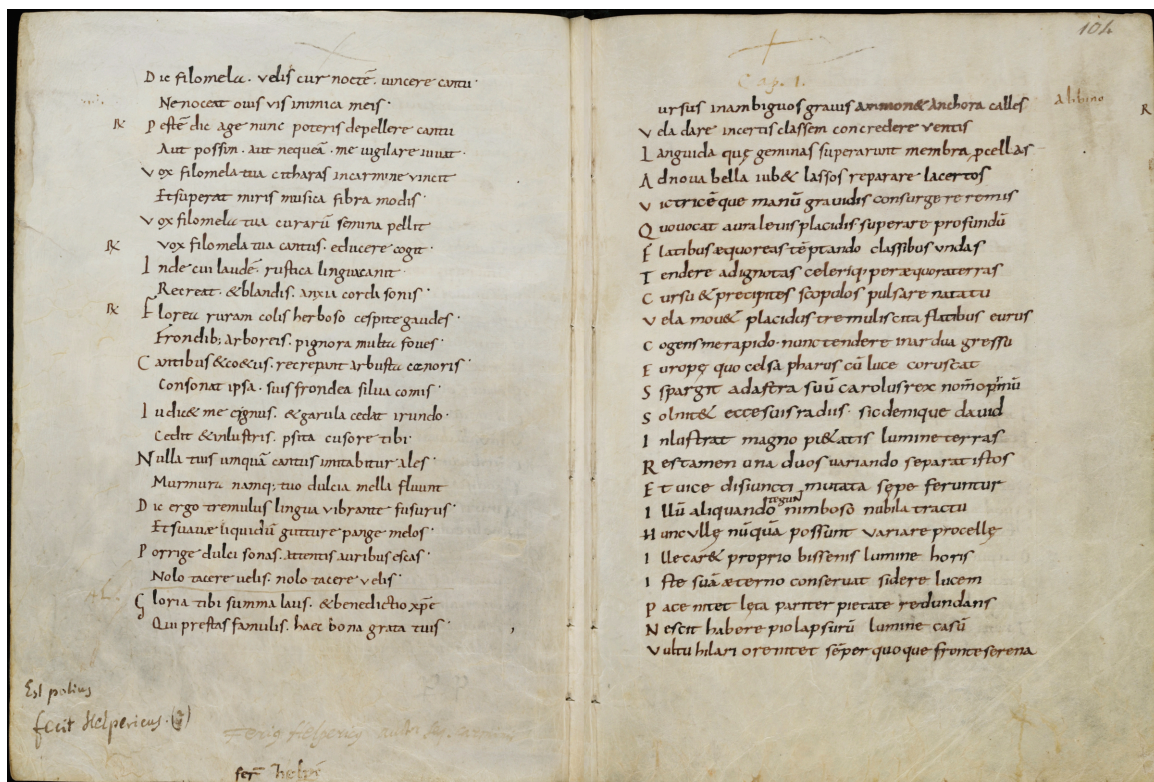 Dic filomela. velis cur noctē. vincere cantu.
Ne noceat ovis vis inimica meis.
Pestē dic age nunc poteris depellere cantu
Aut possim. aut nequeā. me vigilare iuvat.
Vox filomela tua citharas in carmine vincit
Et superat miris musica fibra modis.
Vox filomela tua curarū semina pellit
Vox filomela tua cantus. educere cogit.
Inde cui laudē. rustica lingua canit.
Recreat. & blandis. anxia corda sonis.
Florea ruram colis herboso cespite gaudes.
Frondib; arboreis. pignora multa foves.
Cantibus & recrepant arbusta canoris.
Consonat ipsa. suis frondea silva comis.
Iudic& me cignus. & garula cedat irundo.
Cedit & inlustris. psita cusore tibi.
Nulla tuis umquā cantus imitabitur ales.
Murmura namq; tuo dulcia mella fluunt
Dic ergo tremulus lingua vibrante susurus
Et suavae liquidū gutture pange melos.
Porrige dulci sonas. attentis auribus escas.
Nolo tacere velis. nolo tacere velis.
Gloria tibi summa laus. & benedictio xp̄e
Qui prestas famulis. haec bona grata tuis.
Est potius
fecit Helpericus.
104
Cap. 1.
ursus in ambiguos gravis ammon& anchora calles
Vela dare incertis classem concredere ventis
Languida quę geminas superarunt membra pcellas
Ad nova bella iub& lassos reparare lacertos
Victricēque manū gravidis consurgere remus
Quo vocat aura levis placidis superare profundū
Flatibus æquoreas tēptando classibus undas
Tendere ad ignotas celeriq; per æquora terras
Cursu & precipites scopolos pulsare natatu
Vela mov& placidus tremulis cita flatibus eurus
Cogens me rapido. nunc tendere in ardua gressu
Europę quo celsa pharus cū luce coruscat
Spargit ad astra suū carolus rex
Sol nit& ecce suis radiis. sic denique david
Inlustrat magno pi&atis lumine terras
Res tamen una duos variando separat istos
Et vice disiuncti mutata sępe feruntur
Illū aliquando tegunt nimboso nubila tractu
Hunc ullę nūquā possunt variare procellę
Ille car& proprio bissenis lumine horis
Iste suā æterno conservat sidere lucem
Pace nitet lęta pariter pietate redundans
Nescit habere pio lapsurū lumine casū
Vultu hilari ore nitet sēper quoque fronte serena